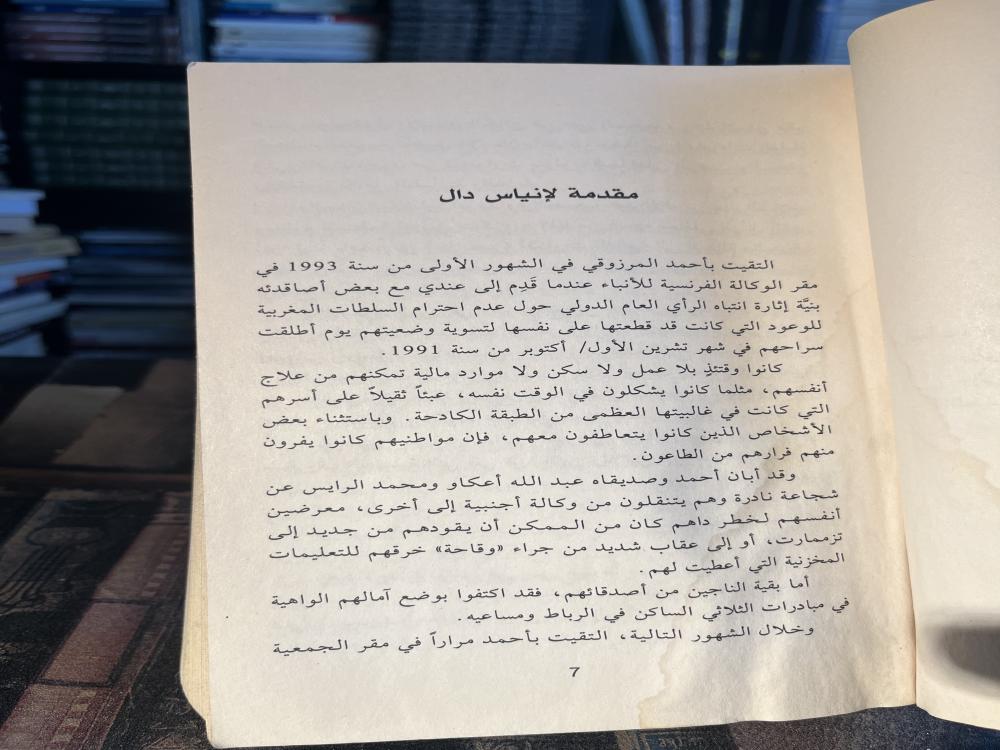 مقدمة لإنياس دال
التقيت بأحمد المرزوقي في الشهور الأولى من سنة 1993 في
مقر الوكالة الفرنسية للأنباء عندما قَدِم إلى عندي مع بعض أصاقدئه
بنيَّة إثارة انتباه الرأي العام الدولي حول عدم احترام السلطات المغربية
للوعود التي كانت قد قطعتها على نفسها لتسوية وضعيتهم يوم أطلقت
سراحهم في شهر تشرين الأول/ أكتوبر من سنة 1991.
كانوا وقتئذٍ بلا عمل ولا سكن ولا موارد مالية تمكنهم من علاج
أنفسهم، مثلما كانوا يشكلون في الوقت نفسه، عبئاً ثقيلاً على أسرهم
التي كانت في غالبيتها العظمى من الطبقة الكادحة. وباستثناء بعض
الأشخاص الذين كانوا يتعاطفون معهم، فإن مواطنيهم كانوا يفرون
منهم فرارهم من الطاعون.
وقد أبان أحمد وصديقاه عبد الله أعكاو ومحمد الرايس عن
شجاعة نادرة وهم يتنقلون من وكالة أجنبية إلى أخرى، معرضين
أنفسهم لخطر داهم كان من الممكن أن يقودهم من جديد إلى
تزممارت، أو إلى عقاب شديد من جراء «وقاحة» خرقهم للتعليمات
المخزنية التي أعطيت لهم.
أما بقية الناجين من أصدقائهم، فقد اكتفوا بوضع آمالهم الواهية
في مبادرات الثلاثي الساكن في الرباط ومساعيه.
وخلال الشهور التالية، التقيت بأحمد مراراً في مقر الجمعية
7